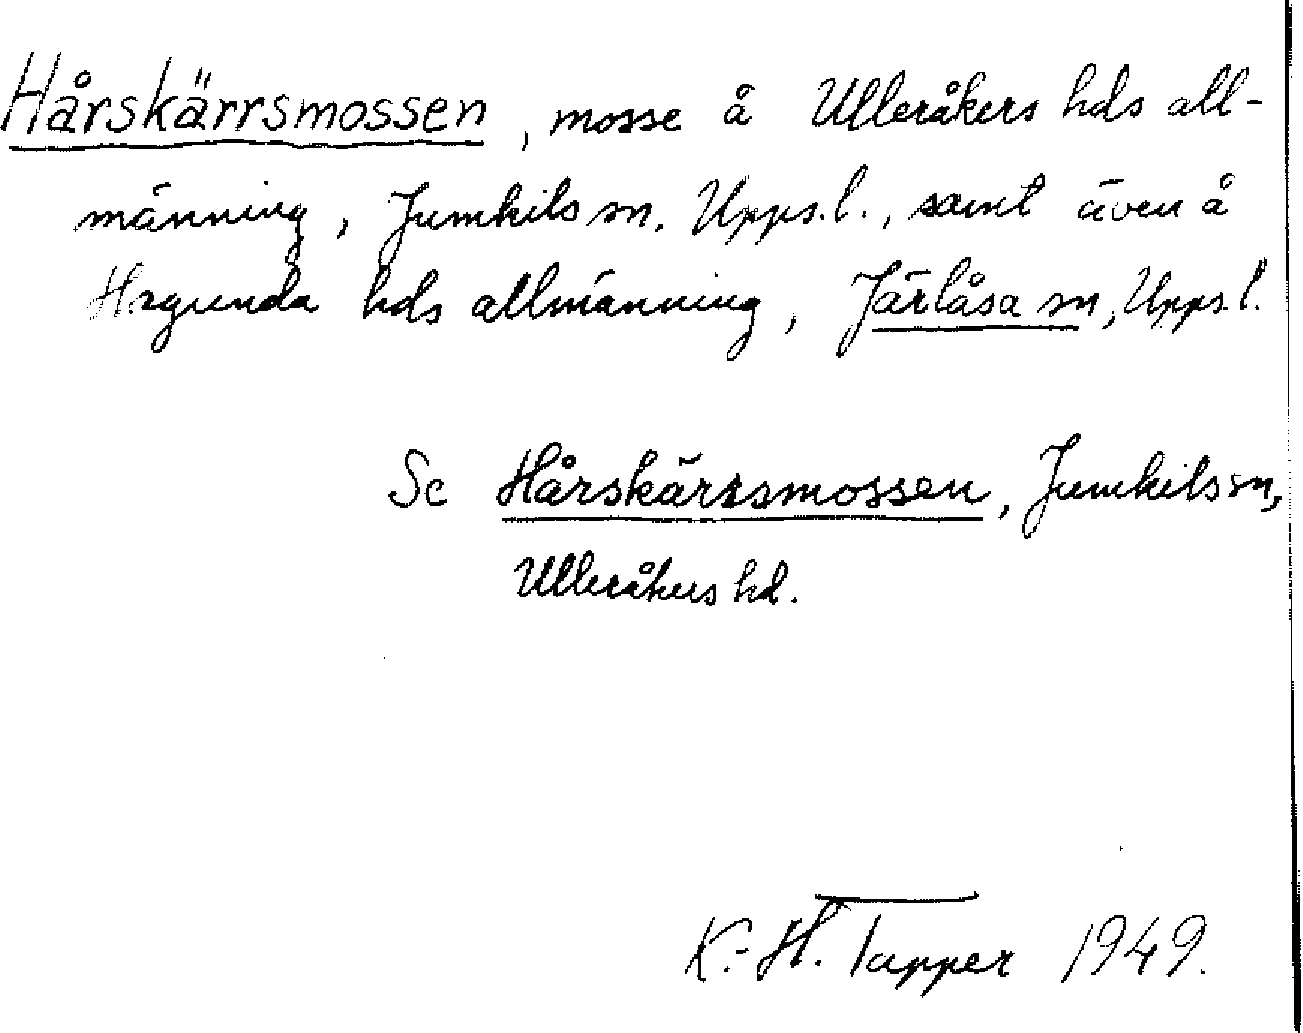 Hårskärrsmossen, mosse å Ulleråkers hds all-
männing, Jumkils sn, Upps.l., samt även å
Hagunda hds allmänning, Järlåsa sn, Upps.l.
Se Hårskärrsmossen, Jumkils sn,
Ulleråkers hd.
K.-H. Tapper 1949.